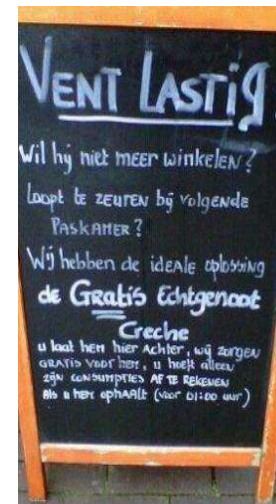 VENT LASTiG
Wil hij niet meer winkelen?
Loopt te zeuren bij volgende
PASKAMER?
Wij hebben de ideale oplossing
de Gratis Echtgenoot
Creche
u laat hem hier Achter, wij zorgen
GRATIS VOOR hem, u hoeft alleen
zijn consumpties AF TE REKENEN
Als u hem ophaalt (voor 01:00 uur)